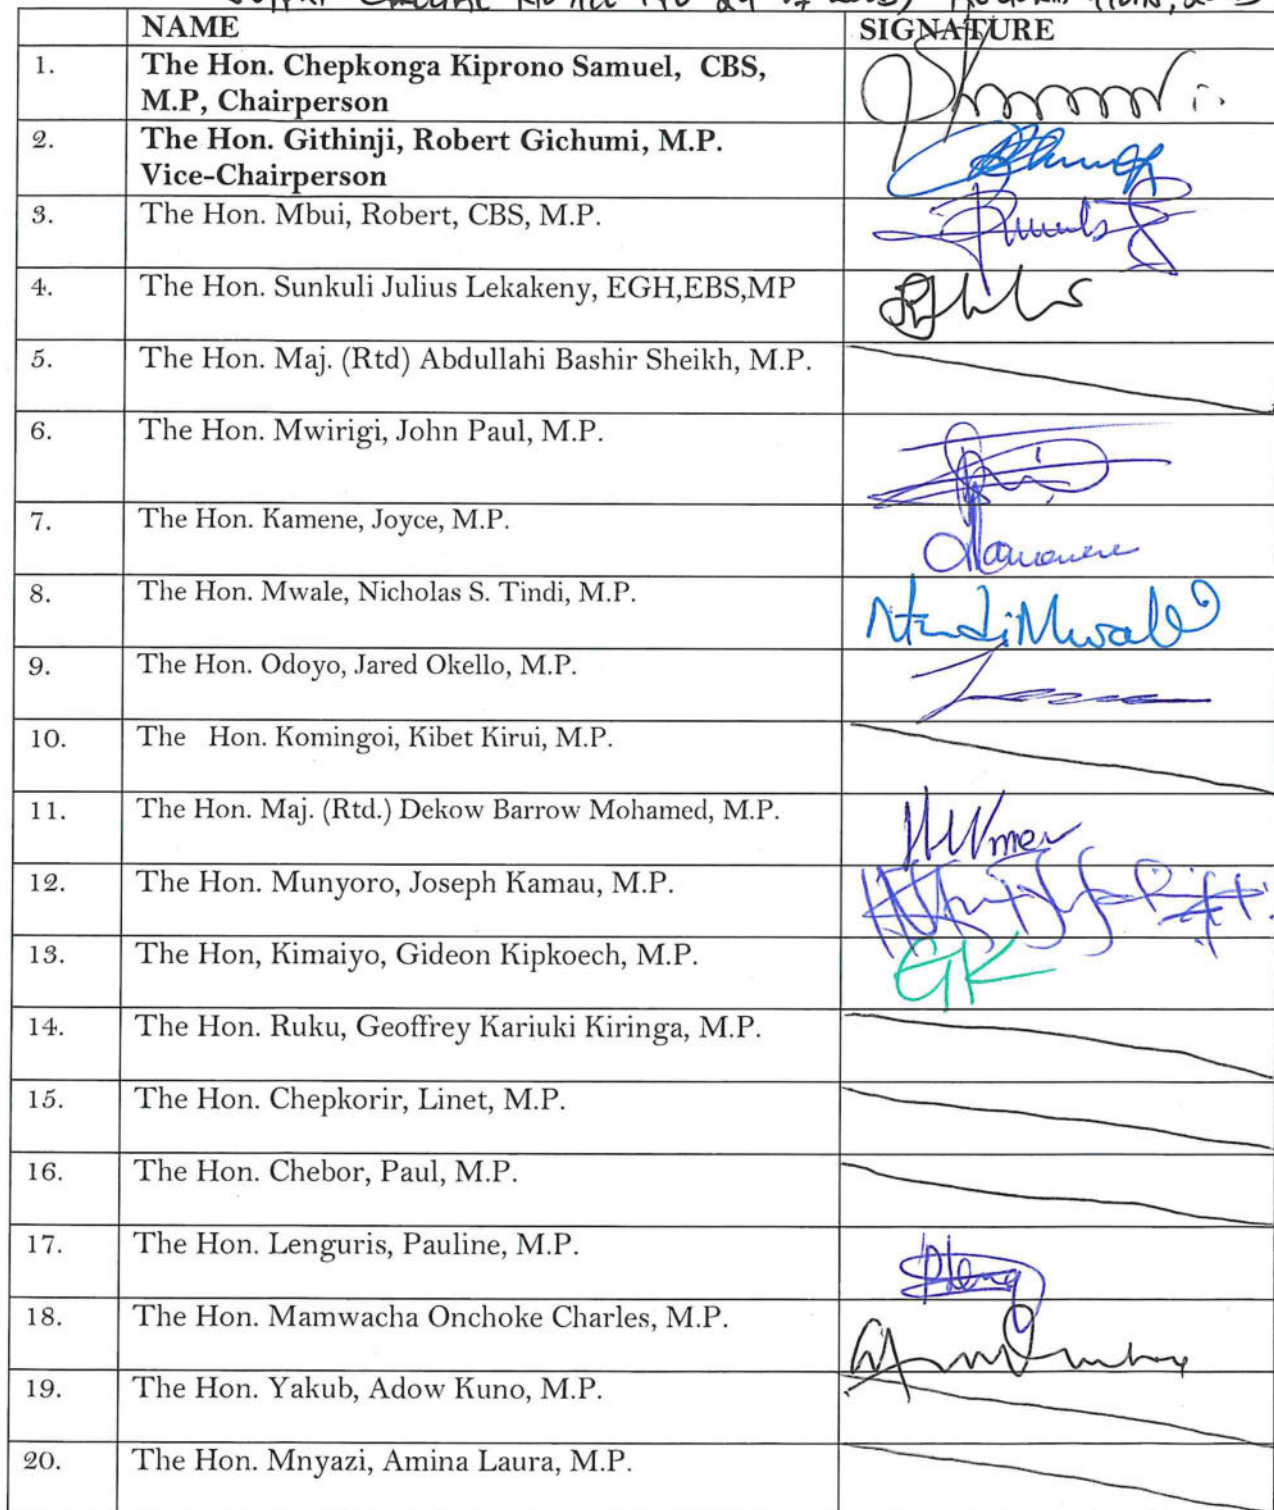 NAME SIGNATURE
1. The Hon. Chepkonga Kiprono Samuel, CBS,
M.P, Chairperson
2. The Hon. Githinji, Robert Gichumi, M.P.
Vice-Chairperson
3. The Hon. Mbui, Robert, CBS, M.P.
4. The Hon. Sunkuli Julius Lekakeny, EGH,EBS,MP
5. The Hon. Maj. (Rtd) Abdullahi Bashir Sheikh, M.P.
6. The Hon. Mwirigi, John Paul, M.P.
7. The Hon. Kamene, Joyce, M.P.
8. The Hon. Mwale, Nicholas S. Tindi, M.P.
9. The Hon. Odoyo, Jared Okello, M.P.
10. The Hon. Komingoi, Kibet Kirui, M.P.
11. The Hon. Maj. (Rtd.) Dekow Barrow Mohamed, M.P.
12. The Hon. Munyoro, Joseph Kamau, M.P.
13. The Hon, Kimaiyo, Gideon Kipkoech, M.P. GK
14. The Hon. Ruku, Geoffrey Kariuki Kiringa, M.P.
15. The Hon. Chepkorir, Linet, M.P.
16. The Hon. Chebor, Paul, M.P.
17. The Hon. Lenguris, Pauline, M.P.
18. The Hon. Mamwacha Onchoke Charles, M.P.
19. The Hon. Yakub, Adow Kuno, M.P.
20. The Hon. Mnyazi, Amina Laura, M.P.